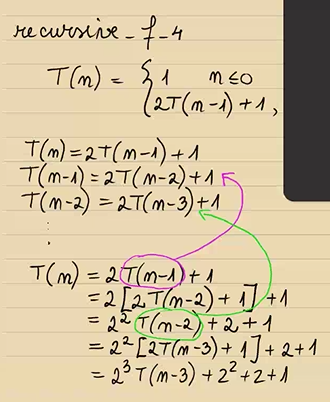 recursive_f_4
T(n) = { 1 n≤0
2T(n-1)+1,
T(n)=2T(n-1)+1
T(n-1)=2T(n-2)+1
T(n-2)=2T(n-3)+1
⋮
T(n) = 2T(n-1)+1
= 2[2T(n-2)+1]+1
= 2² T(n-2)+2+1
= 2² [2T(n-3)+1]+2+1
= 2³ T(n-3)+2²+2+1